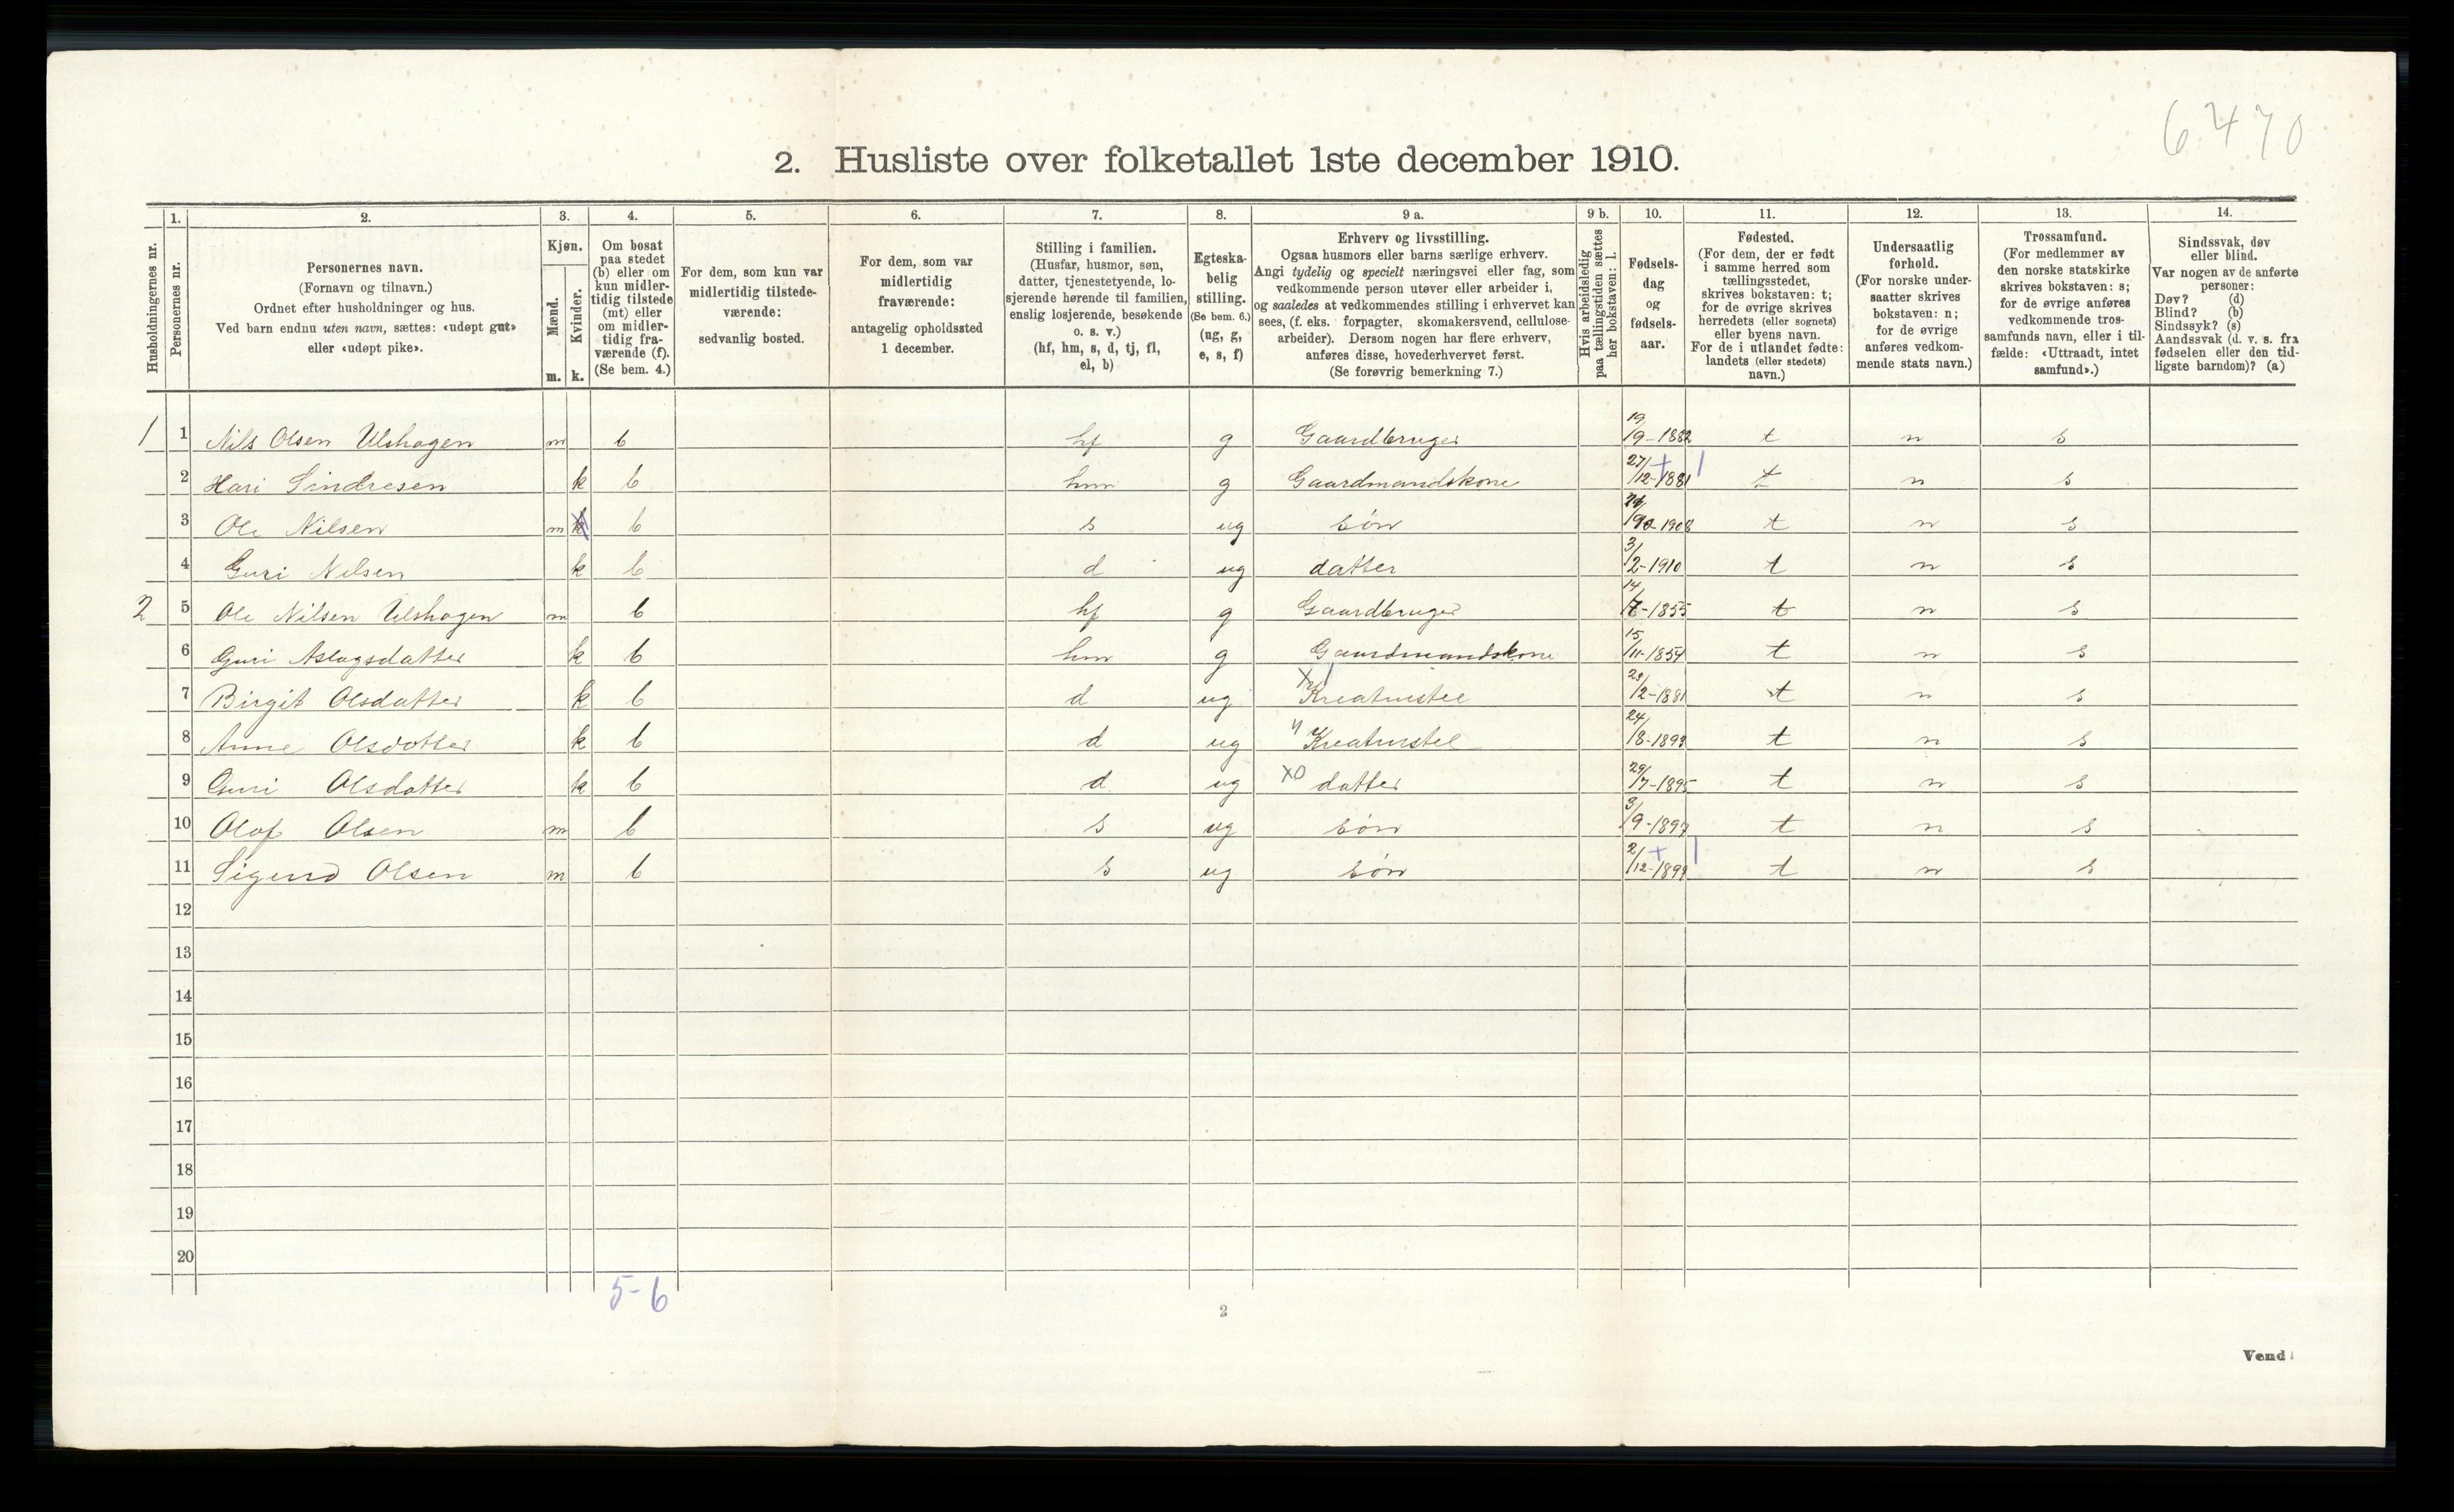 6470
2. Husliste over folketallet 1ste december 1910.
1. 2. 3. 4. 5. 6. 7. 8. 9 a. 9 b. 10. 11. 12. 13. 14.
Husholdningernes nr.
Personernes nr.
Personernes navn.
(Fornavn og tilnavn.)
Ordnet efter husholdninger og hus.
Ved barn endnu uten navn, sættes: «udøpt gut»
eller «udøpt pike».
Kjøn.
Mænd.
Kvinder.
m. k.
Om bosat
paa stedet
(b) eller om
kun midler-
tidig tilstede
(mt) eller
om midler-
tidig fra-
værende (f).
(Se bem. 4.)
For dem, som kun var
midlertidig tilstede-
værende:
sedvanlig bosted.
For dem, som var
midlertidig
fraværende:
antagelig opholdssted
1 december.
Stilling i familien.
(Husfar, husmor, søn,
datter, tjenestetyende, lo-
sjerende hørende til familien,
enslig losjerende, besøkende
o. s. v.)
(hf, hm, s, d, tj, fl,
el, b)
Egteska-
belig
stilling.
(Se bem. 6.)
(ug, g,
e, s, f)
Erhverv og livsstilling.
Ogsaa husmors eller barns særlige erhverv.
Angi tydelig og specielt næringsvei eller fag, som
vedkommende person utøver eller arbeider i,
og saaledes at vedkommendes stilling i erhvervet kan
sees, (f. eks. forpagter, skomakersvend, cellulose-
arbeider). Dersom nogen har flere erhverv,
anføres disse, hovederhvervet først.
(Se forøvrig bemerkning 7.)
Hvis arbeidsledig
paa tællingstiden sættes
her bokstaven: l.
Fødsels-
dag
og
fødsels-
aar.
Fødested.
(For dem, der er født
i samme herred som
tællingsstedet,
skrives bokstaven: t;
for de øvrige skrives
herredets (eller sognets)
eller byens navn.
For de i utlandet fødte:
landets (eller stedets)
navn.)
Undersaatlig
forhold.
(For norske under-
saatter skrives
bokstaven: n;
for de øvrige
anføres vedkom-
mende stats navn.)
Trossamfund.
(For medlemmer av
den norske statskirke
skrives bokstaven: s;
for de øvrige anføres
vedkommende tros-
samfunds navn, eller i til-
fælde: «Uttraadt, intet
samfund».)
Sindssvak, døv
eller blind.
Var nogen av de anførte
personer:
Døv? (d)
Blind? (b)
Sindssyk? (s)
Aandssvak (d. v. s. fra
fødselen eller den tid-
ligste barndom)? (a)
1 1 Nils Olsen Ulshagen m b hf g Gaardbruger 19/9-1882 t n s
2 Hari Sindresen k b hm g Gaardmandskone 27/12-1881 t n s
3 Ole Nilsen m k b s ug søn 1908 t n s
4 Guri Nilsen k b d ug datter 3/2-1910 t n s
2 5 Ole Nilsen Ulshagen m b hf g Gaardbruger 14/7-1855 t n s
6 Guri Aslagsdatter k b hm g Gaardmandskone 15/11-1854 t n s
7 Birgit Olsdatter k b d ug Kreaturstel 23/2-1881 t n s
8 Anne Olsdatter k b d ug Kreaturstel 24/8-1893 t n s
9 Guri Olsdatter k b d ug datter 29/7-1895 t n s
10 Olaf Olsen m b s ug søn 3/9-1897 t n s
11 Sigurd Olsen m b s ug søn 2/12-1899 t n s
12
13
14
15
16
17
18
19
20
5-6
2
Vend!